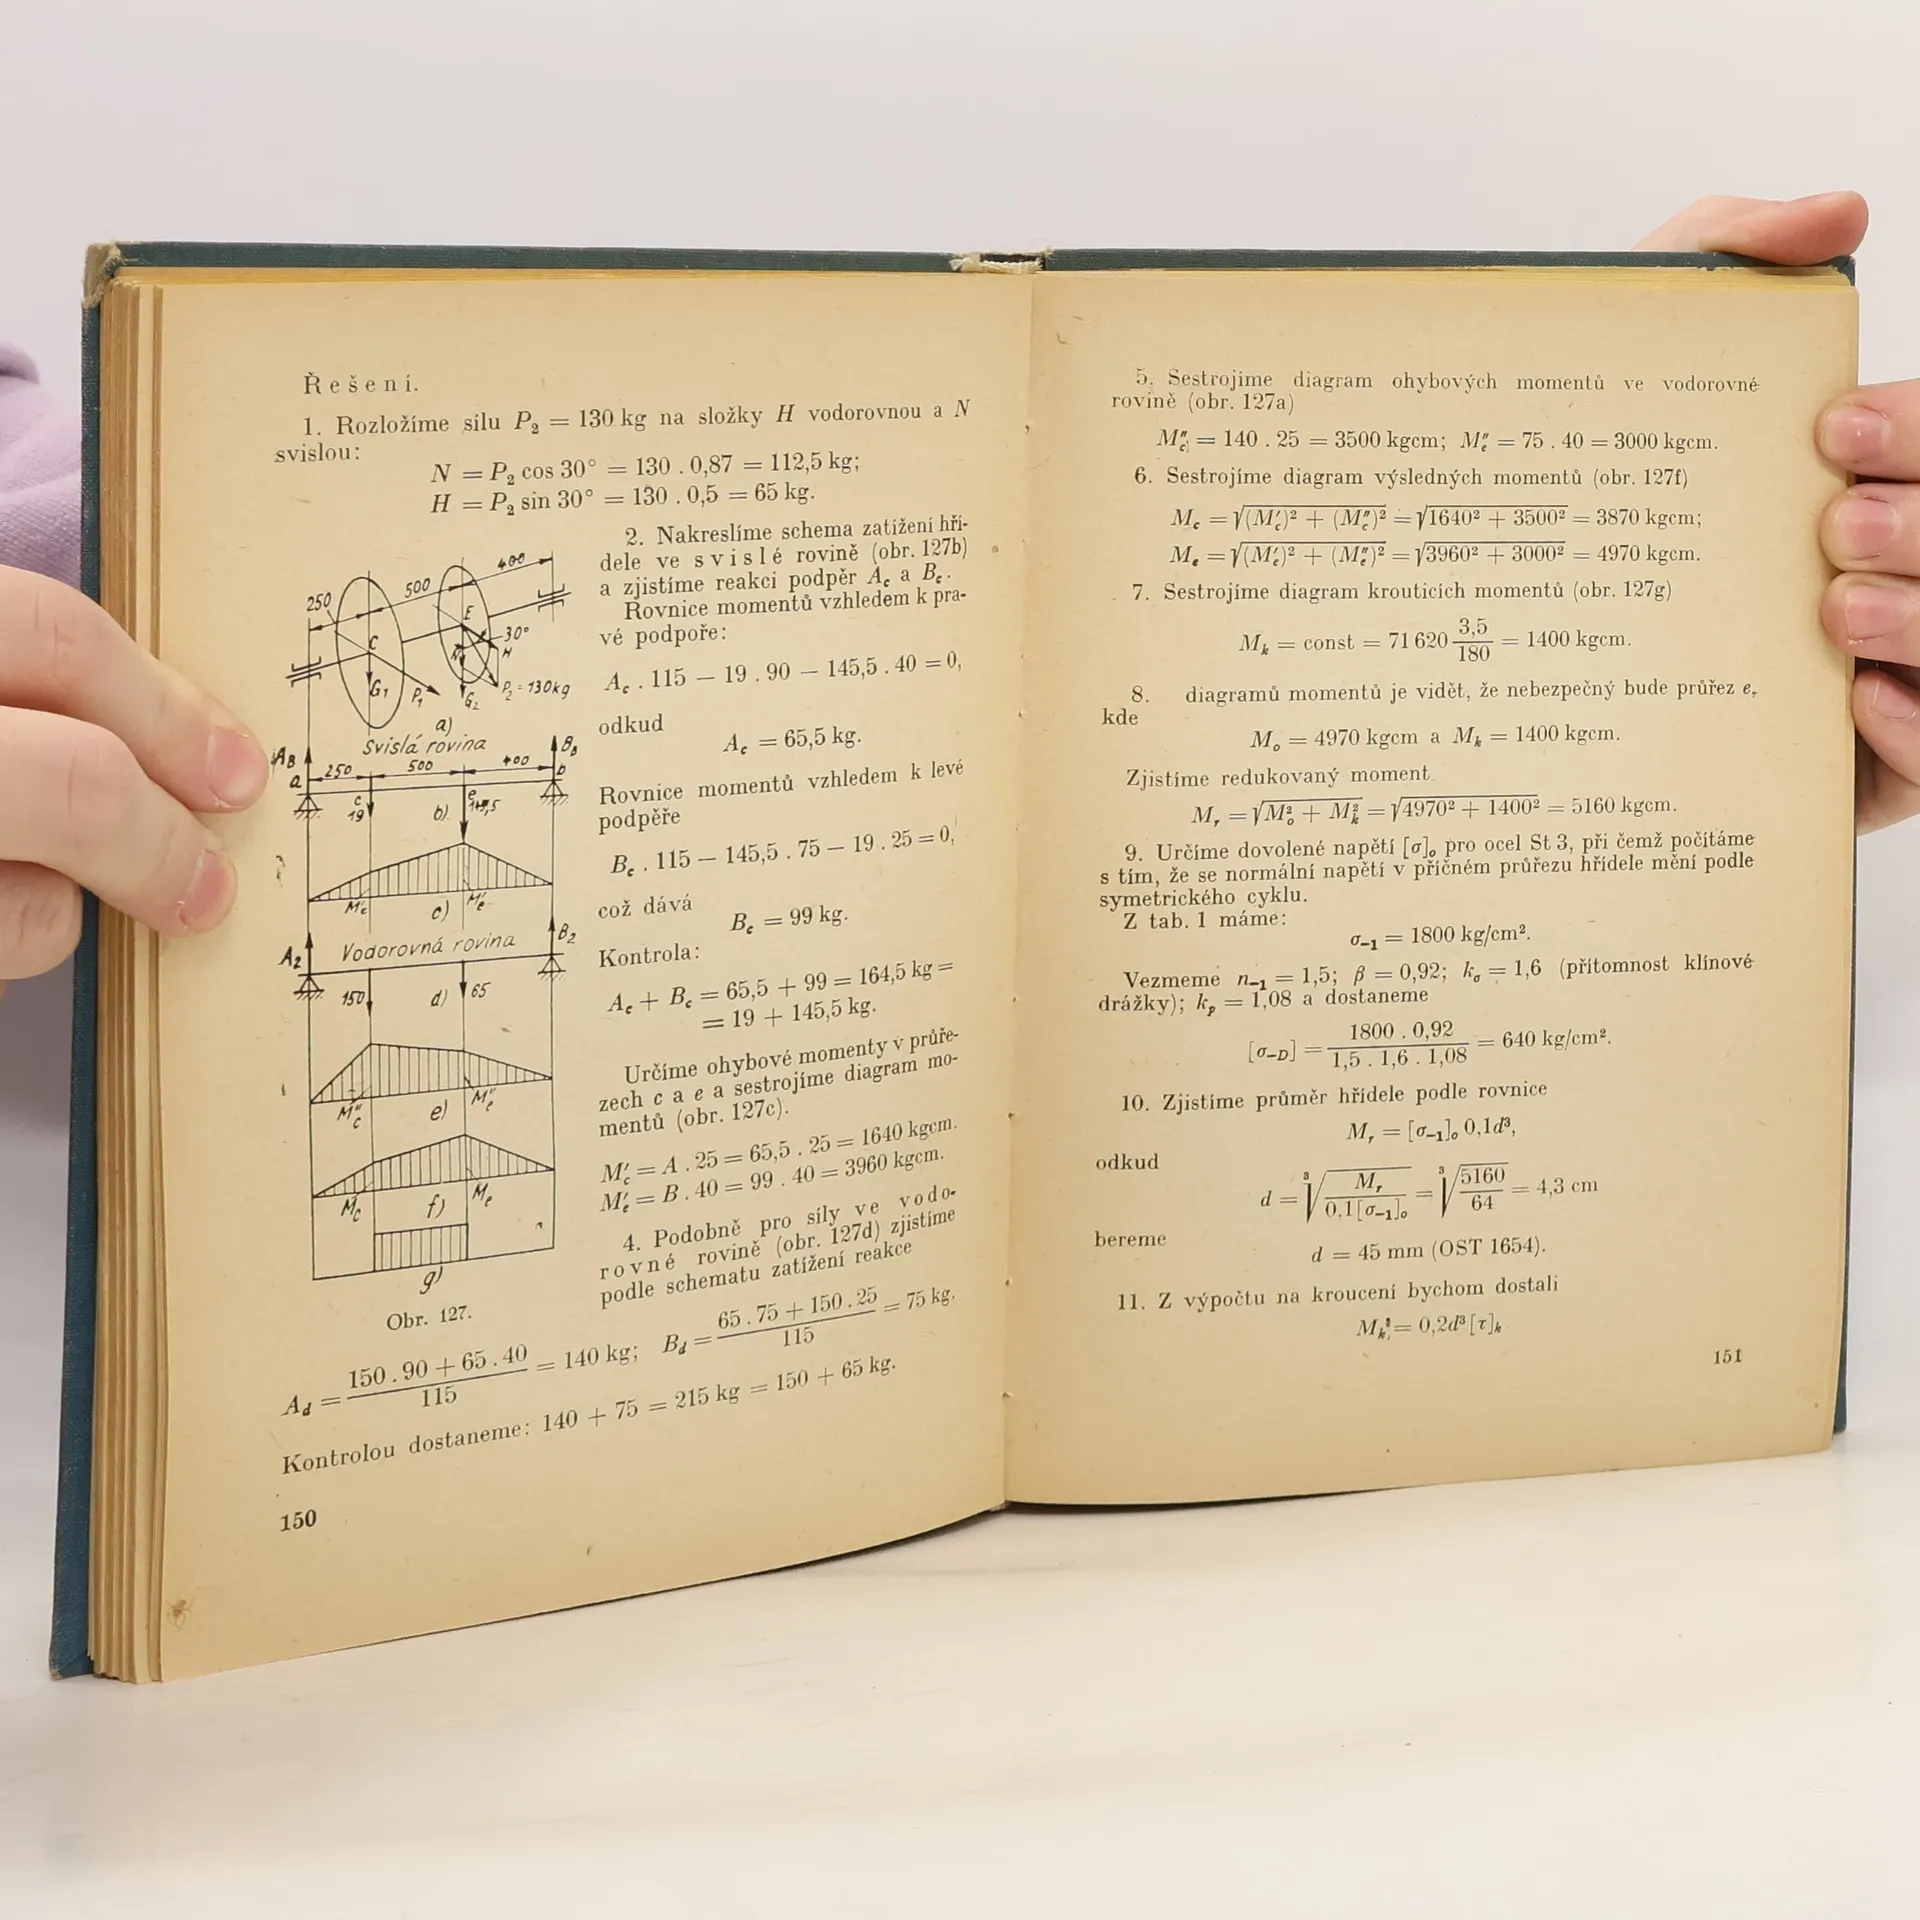 Řešení.
1. Rozložíme sílu P₂ = 130 kg na složky H vodorovnou a N
svislou:
N = P₂ cos 30° = 130 . 0,87 = 112,5 kg;
H = P₂ sin 30° = 130 . 0,5 = 65 kg.
250
500
400
C
E
30°
N
H
G₁
P₁
G₂
P₂ = 130kg
a)
Svislá rovina
a
250
500
400
b
c
19
b)
e
M'c
c)
M'e
A₂
Vodorovná rovina
B₂
150
d)
65
M''c
e)
M''e
Mc
f)
Me
g)
Obr. 127.
2. Nakreslíme schema zatížení hří-
dele ve svislé rovině (obr. 127b)
a zjistíme reakci podpěr Ac a Bc.
Rovnice momentů vzhledem k pra-
vé podpoře:
Ac . 115 — 19 . 90 — 145,5 . 40 = 0,
odkud
Ac = 65,5 kg.
Rovnice momentů vzhledem k levé
podpěře
Bc . 115 — 145,5 . 75 — 19 . 25 = 0,
což dává
Bc = 99 kg.
Kontrola:
Ac + Bc = 65,5 + 99 = 164,5 kg =
= 19 + 145,5 kg.
Určíme ohybové momenty v průře-
zech c a e a sestrojíme diagram mo-
mentů (obr. 127c).
M'c = A . 25 = 65,5 . 25 = 1640 kgcm.
M'e = B . 40 = 99 . 40 = 3960 kgcm.
4. Podobně pro síly ve vodo-
rovné rovině (obr. 127d) zjistíme
podle schematu zatížení reakce
Ad = (150 . 90 + 65 . 40) / 115 = 140 kg; Bd = (65 . 75 + 150 . 25) / 115 = 75 kg.
Kontrolou dostaneme: 140 + 75 = 215 kg = 150 + 65 kg.
150
5. Sestrojíme diagram ohybových momentů ve vodorovné
rovině (obr. 127a)
M''c = 140 . 25 = 3500 kgcm; M''e = 75 . 40 = 3000 kgcm.
6. Sestrojíme diagram výsledných momentů (obr. 127f)
Mc = √(M'c)² + (M''c)² = √1640² + 3500² = 3870 kgcm;
Me = √(M'e)² + (M''e)² = √3960² + 3000² = 4970 kgcm.
7. Sestrojíme diagram krouticích momentů (obr. 127g)
Mk = const = 71 620 3,5/180 = 1400 kgcm.
8. diagramů momentů je vidět, že nebezpečný bude průřez e,
kde
Mo = 4970 kgcm a Mk = 1400 kgcm.
Zjistíme redukovaný moment
Mr = √M²o + M²k = √4970² + 1400² = 5160 kgcm.
9. Určíme dovolené napětí [σ]o pro ocel St 3, při čemž počítáme
s tím, že se normální napětí v příčném průřezu hřídele mění podle
symetrického cyklu.
Z tab. 1 máme:
σ₋₁ = 1800 kg/cm².
Vezmeme n₋₁ = 1,5; β = 0,92; kσ = 1,6 (přítomnost klínové
drážky); kp = 1,08 a dostaneme
[σ₋D] = (1800 . 0,92) / (1,5 . 1,6 . 1,08) = 640 kg/cm².
10. Zjistíme průměr hřídele podle rovnice
Mr = [σ₋₁]o 0,1d³,
odkud
d = ³√(Mr / 0,1[σ₋₁]o) = ³√(5160 / 64) = 4,3 cm
bereme
d = 45 mm (OST 1654).
11. Z výpočtu na kroucení bychom dostali
Mk = 0,2d³ [τ]k
151